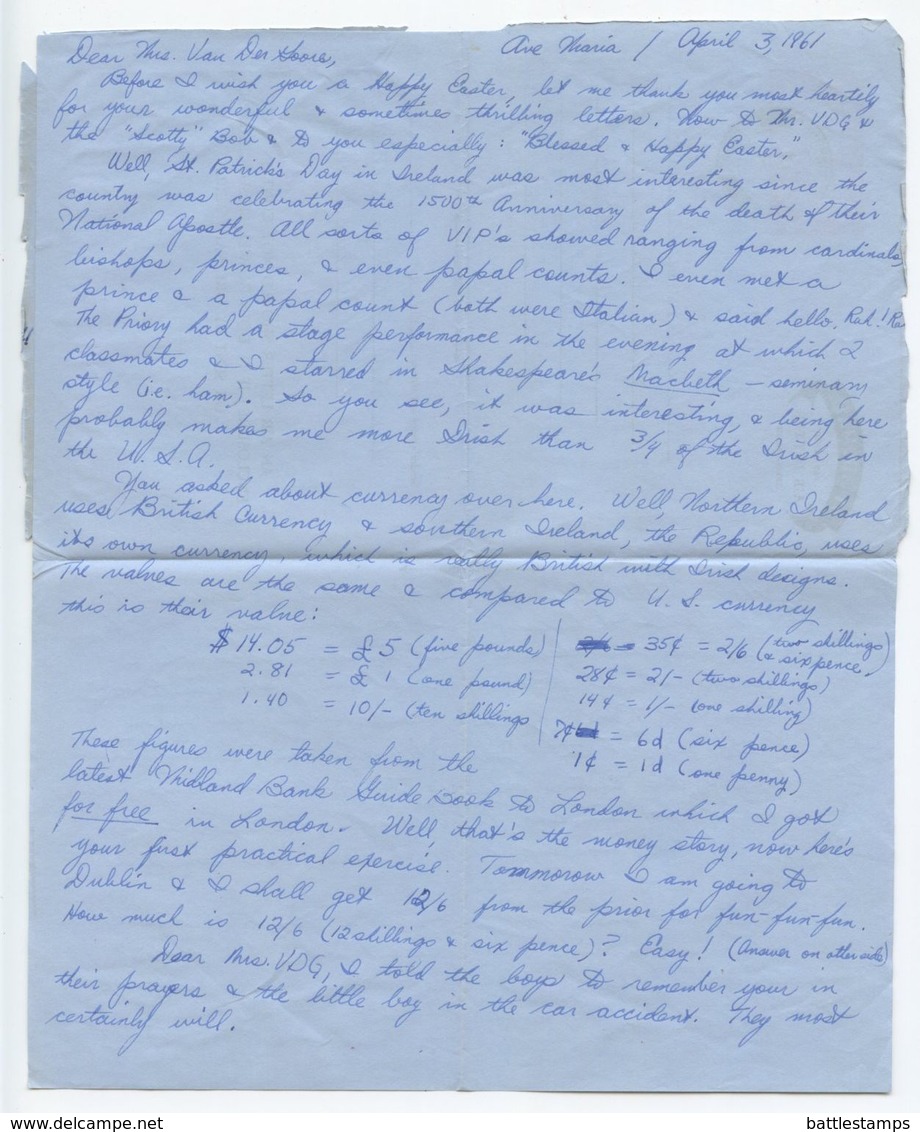 Ave Maria / April 3, 1961
Dear Mrs. Van Der Goore,
Before I wish you a Happy Easter, let me thank you most heartily
for your wonderful & sometimes thrilling letters. Now to Mr. VDG &
the "Scotty" Bob & to you especially: "Blessed & Happy Easter."
Well, St. Patrick's Day in Ireland was most interesting since the
country was celebrating the 1500th Anniversary of the death of their
National Apostle. All sorts of VIP's showed ranging from cardinals,
bishops, princes, & even papal counts. I even met a
prince & a papal count (both were Italian) & said hello. Rah! Rah
The Priory had a stage performance in the evening at which 2
classmates & I starred in Shakespeare's Macbeth – seminary
style (i.e. ham). So you see, it was interesting, & being here
probably makes me more Irish than 3/4 of the Irish in
the U.S.A.
You asked about currency over here. Well Northern Ireland
uses British Currency & southern Ireland, the Republic, uses
its own currency, which is really British with Irish designs.
The values are the same & compared to U.S. currency
this is their value:
$14.05 = £5 (five pounds)
2.81 = £1 (one pound)
1.40 = 10/- (ten shillings
35¢ = 2/6 (two shillings
& sixpence)
28¢ = 2/- (two shillings)
14¢ = 1/- (one shilling)
7¢ = 6d (six pence)
1¢ = 1d (one penny)
These figures were taken from the
latest Midland Bank Guide Book to London which I got
for free in London. Well, that's the money story, now here's
your first practical exercise. Tommorow I am going to
Dublin & I shall get 12/6 from the prior for fun-fun-fun.
How much is 12/6 (12 shillings & six pence)? Easy! (Answer on other side)
Dear Mrs. VDG, I told the boys to remember your in
their prayers & the little boy in the car accident. They most
certainly will.
battlestamps